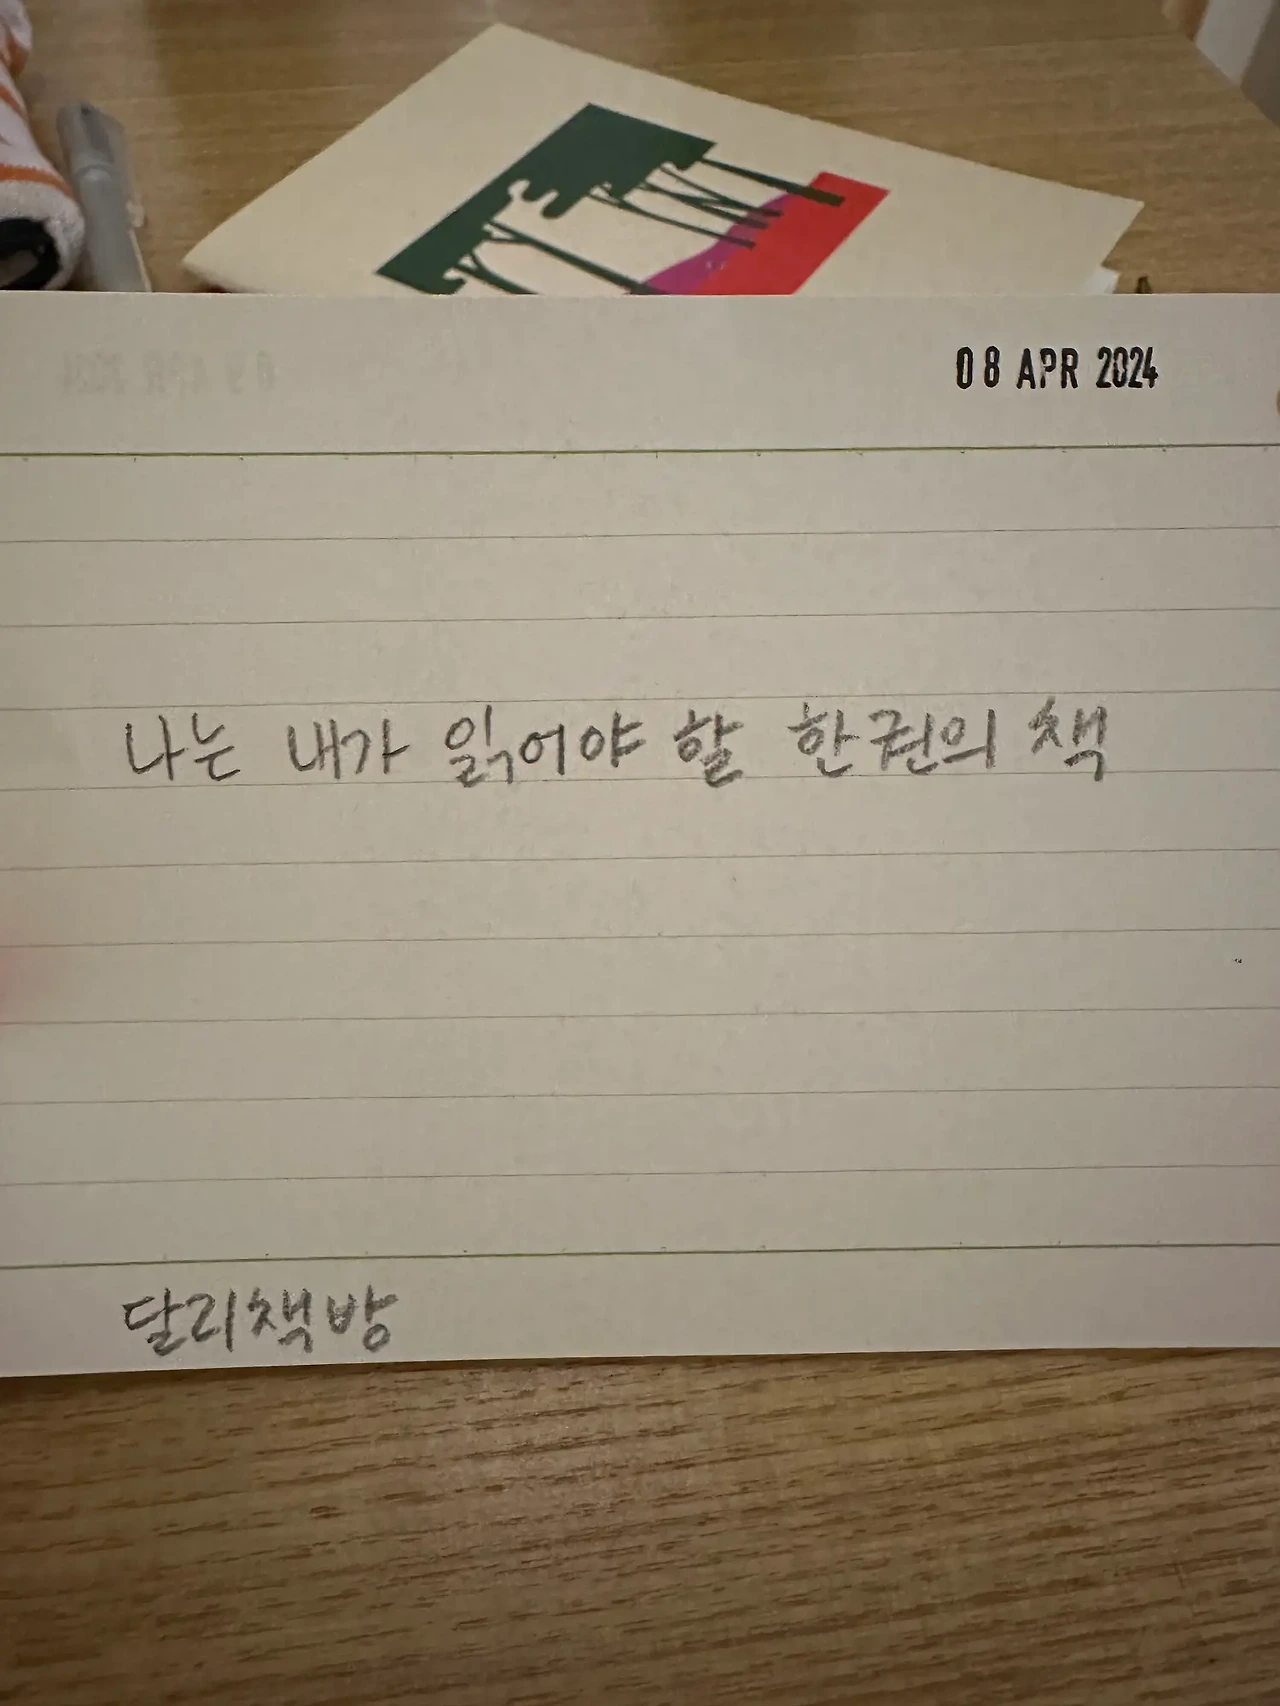 08 APR 2024
나는 내가 읽어야 할 한권의 책
달리책방